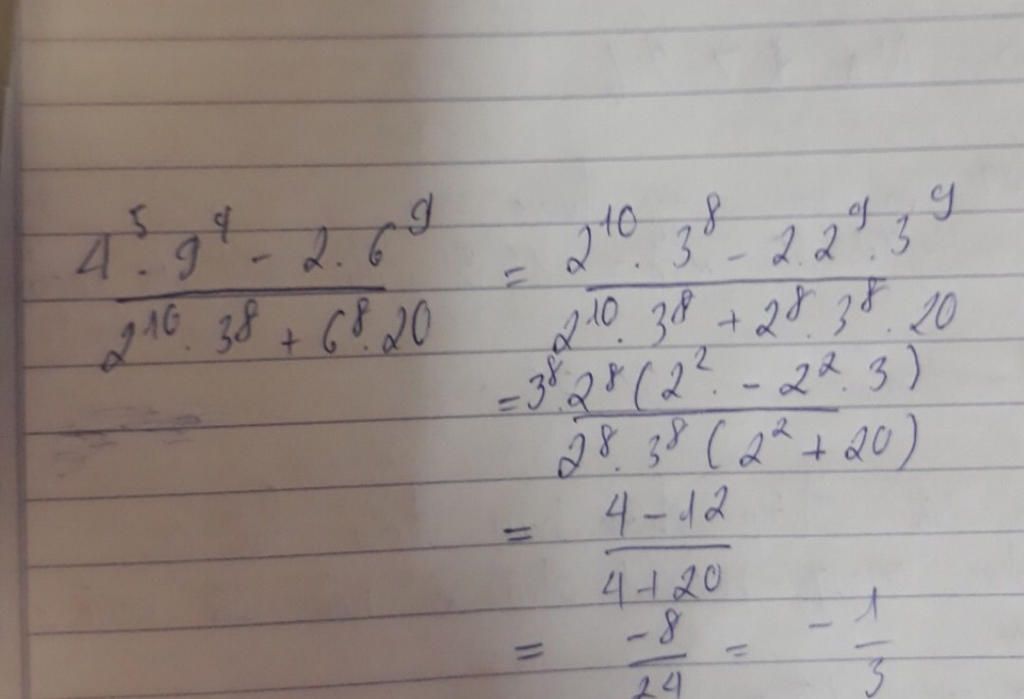 \frac{4^5 . 9^4 - 2.6^9}{2^{10} . 3^8 + 6^8 . 20} = \frac{2^{10} . 3^8 - 2.2^9 . 3^9}{2^{10} . 3^8 + 2^8 . 3^8 . 20}
= \frac{3^8 . 2^8 (2^2 . - 2^2 . 3)}{2^8 . 3^8 (2^2 + 20)}
= \frac{4 - 12}{4 + 20}
= \frac{-8}{24} = -\frac{1}{3}